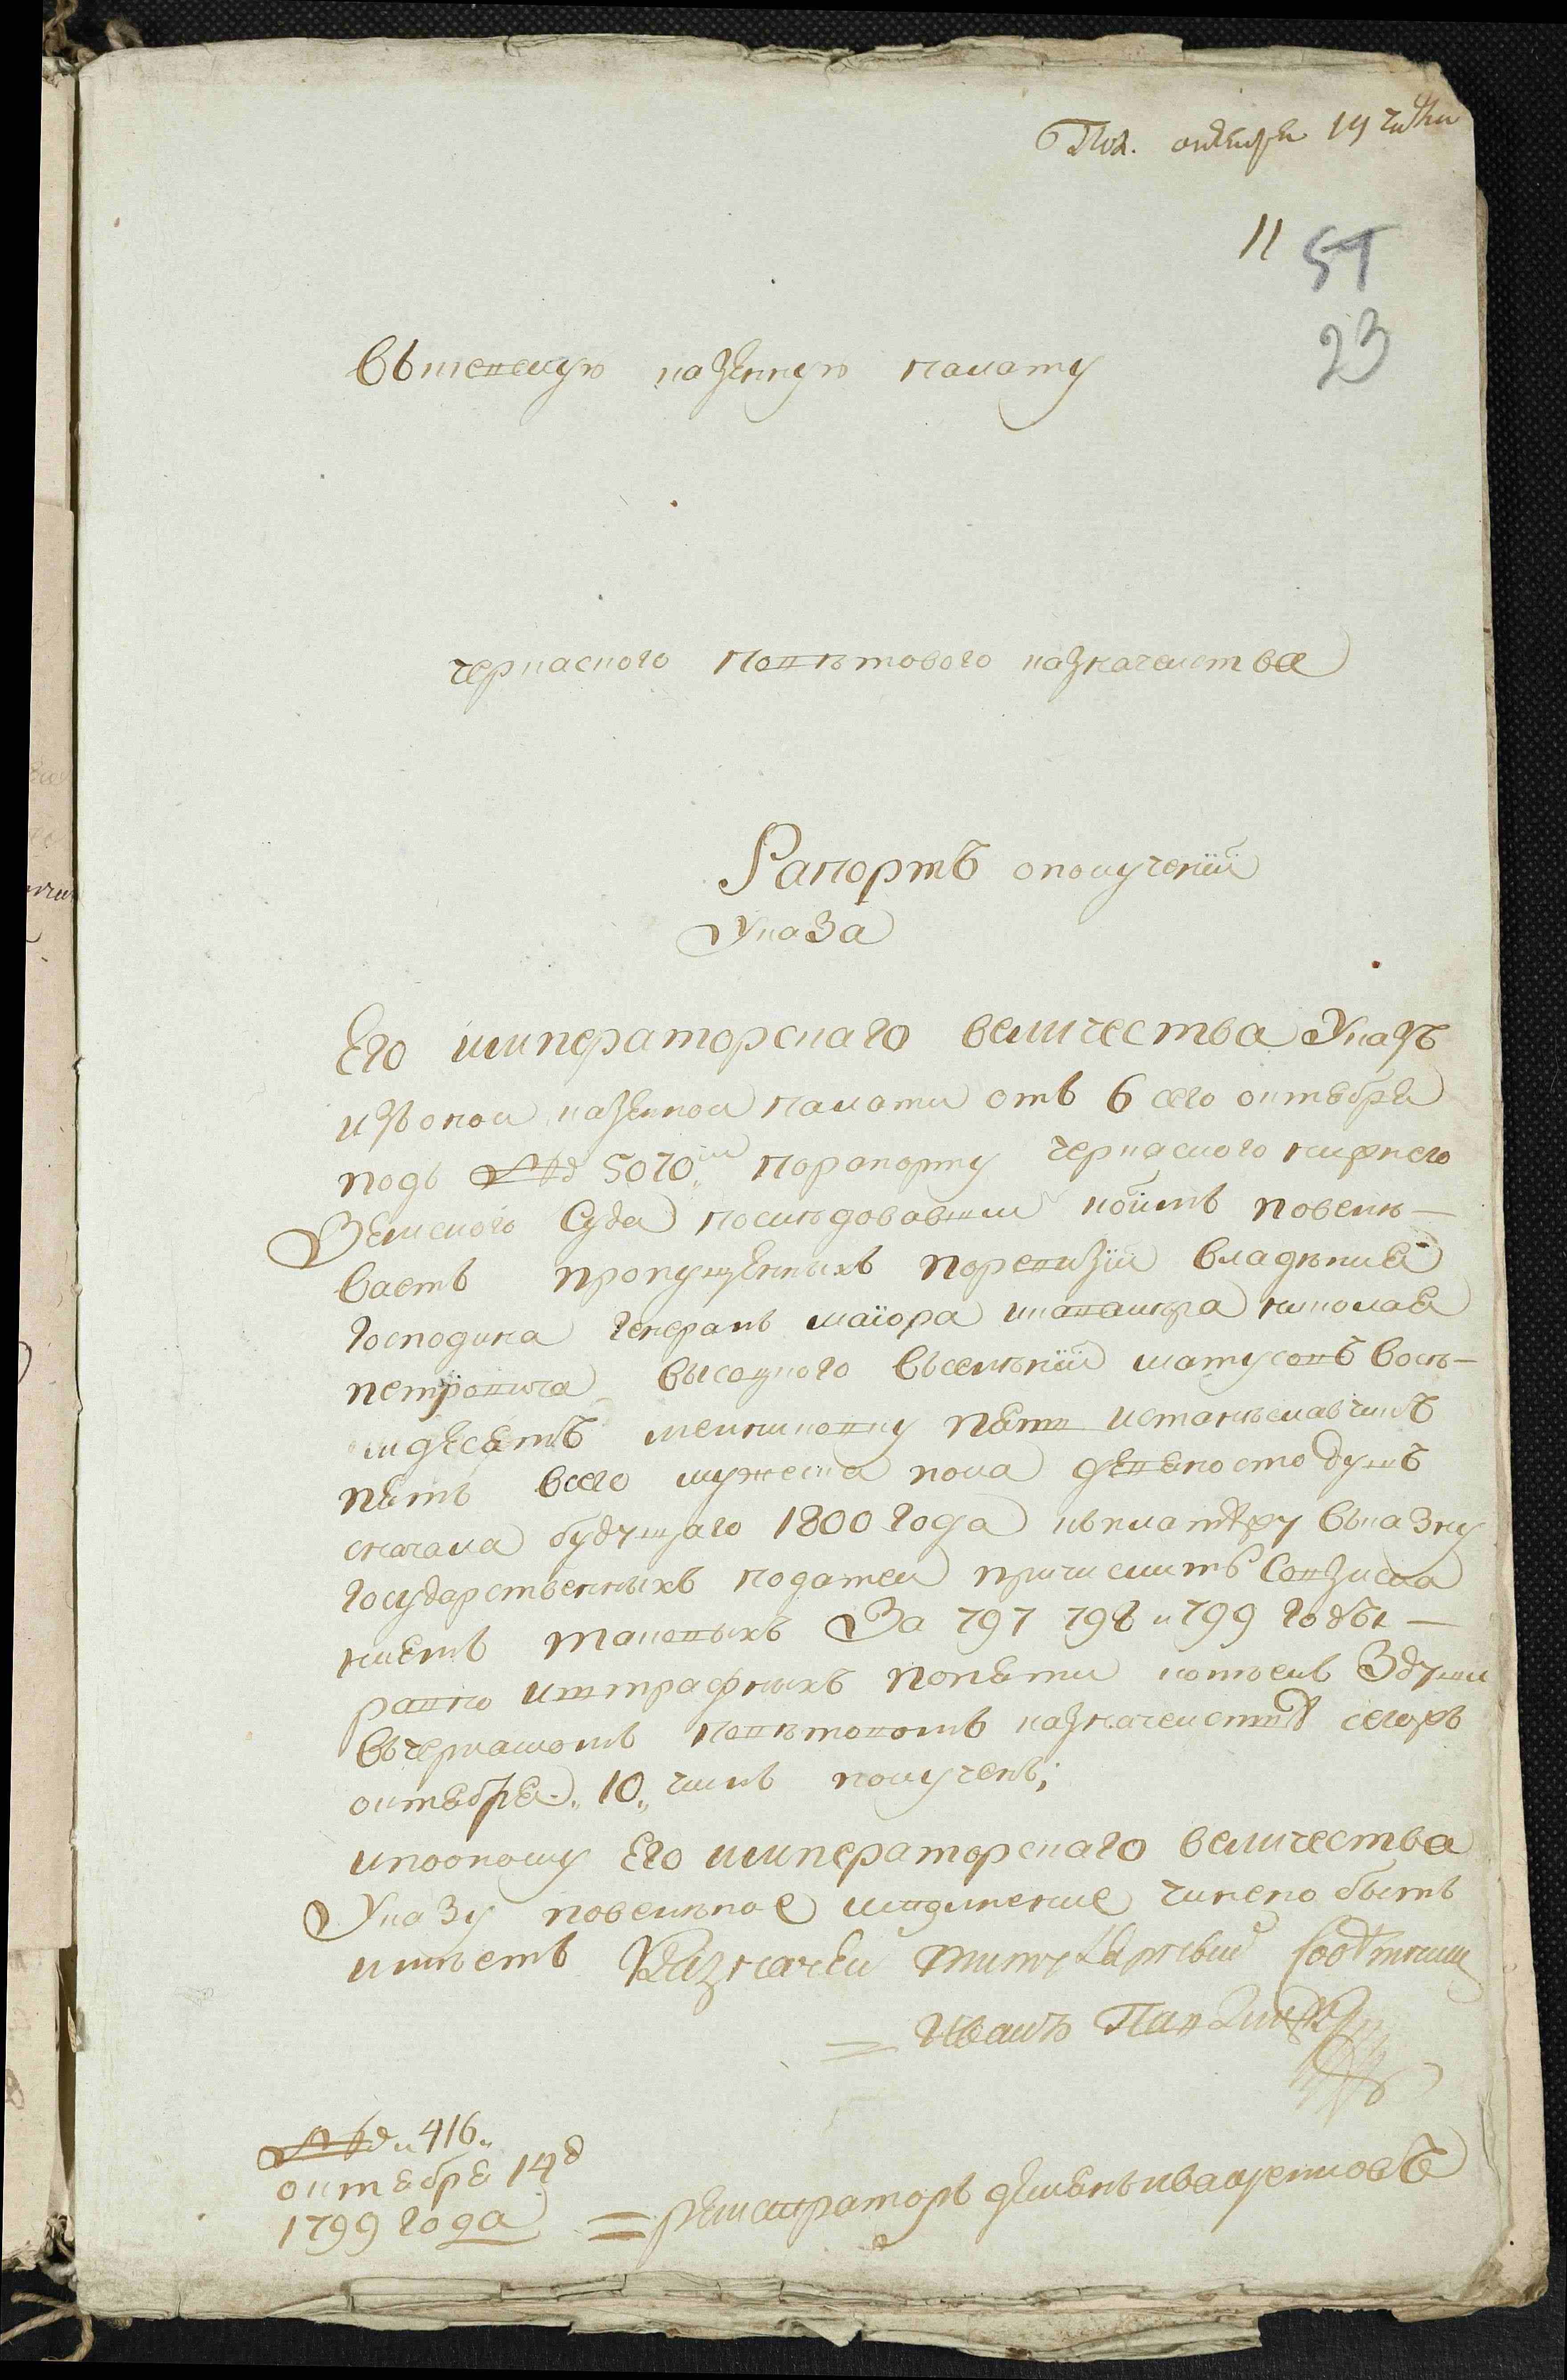 Пол. октября 19 числа
11
51
23
Въ киевскую казенную палату
черкаского поветового казначейства
Рапортъ о получении
Указа
Его императорскаго величества Указъ
изъ оной казенной палаты отъ 6 сего октября
подъ № 5070м по рапорту черкаского нижнего
Земского Суда последовавшей коимъ повеле-
ваетъ пропущенныхъ по ревизии владения
Господина Генералъ маиора и кавалера николая
петровича высоцкого в селении матусовъ восъ-
мдесятъ меликовку пять и станиславчикъ
пять всего мужеска пола девяносто душъ
с начала будущаго 1800 года къ платежу въ казну
государственныхъ податей причислить со взыска
ниемъ таковыхъ За 797 798 и 799 годы —
равно и штрафныхъ по пяти копеекъ З души
въ черкаскомъ поветовомъ казначействе сегожъ
октября „10„ числа полученъ;
и по оному Его императорскаго величества
Указу повеленное исполнение чинено быть
имеетъ Казначей титулярный советникъ
Иванъ
№ „416„
октября 14 д
1799 года
регистраторъ демянъ иващенковъ